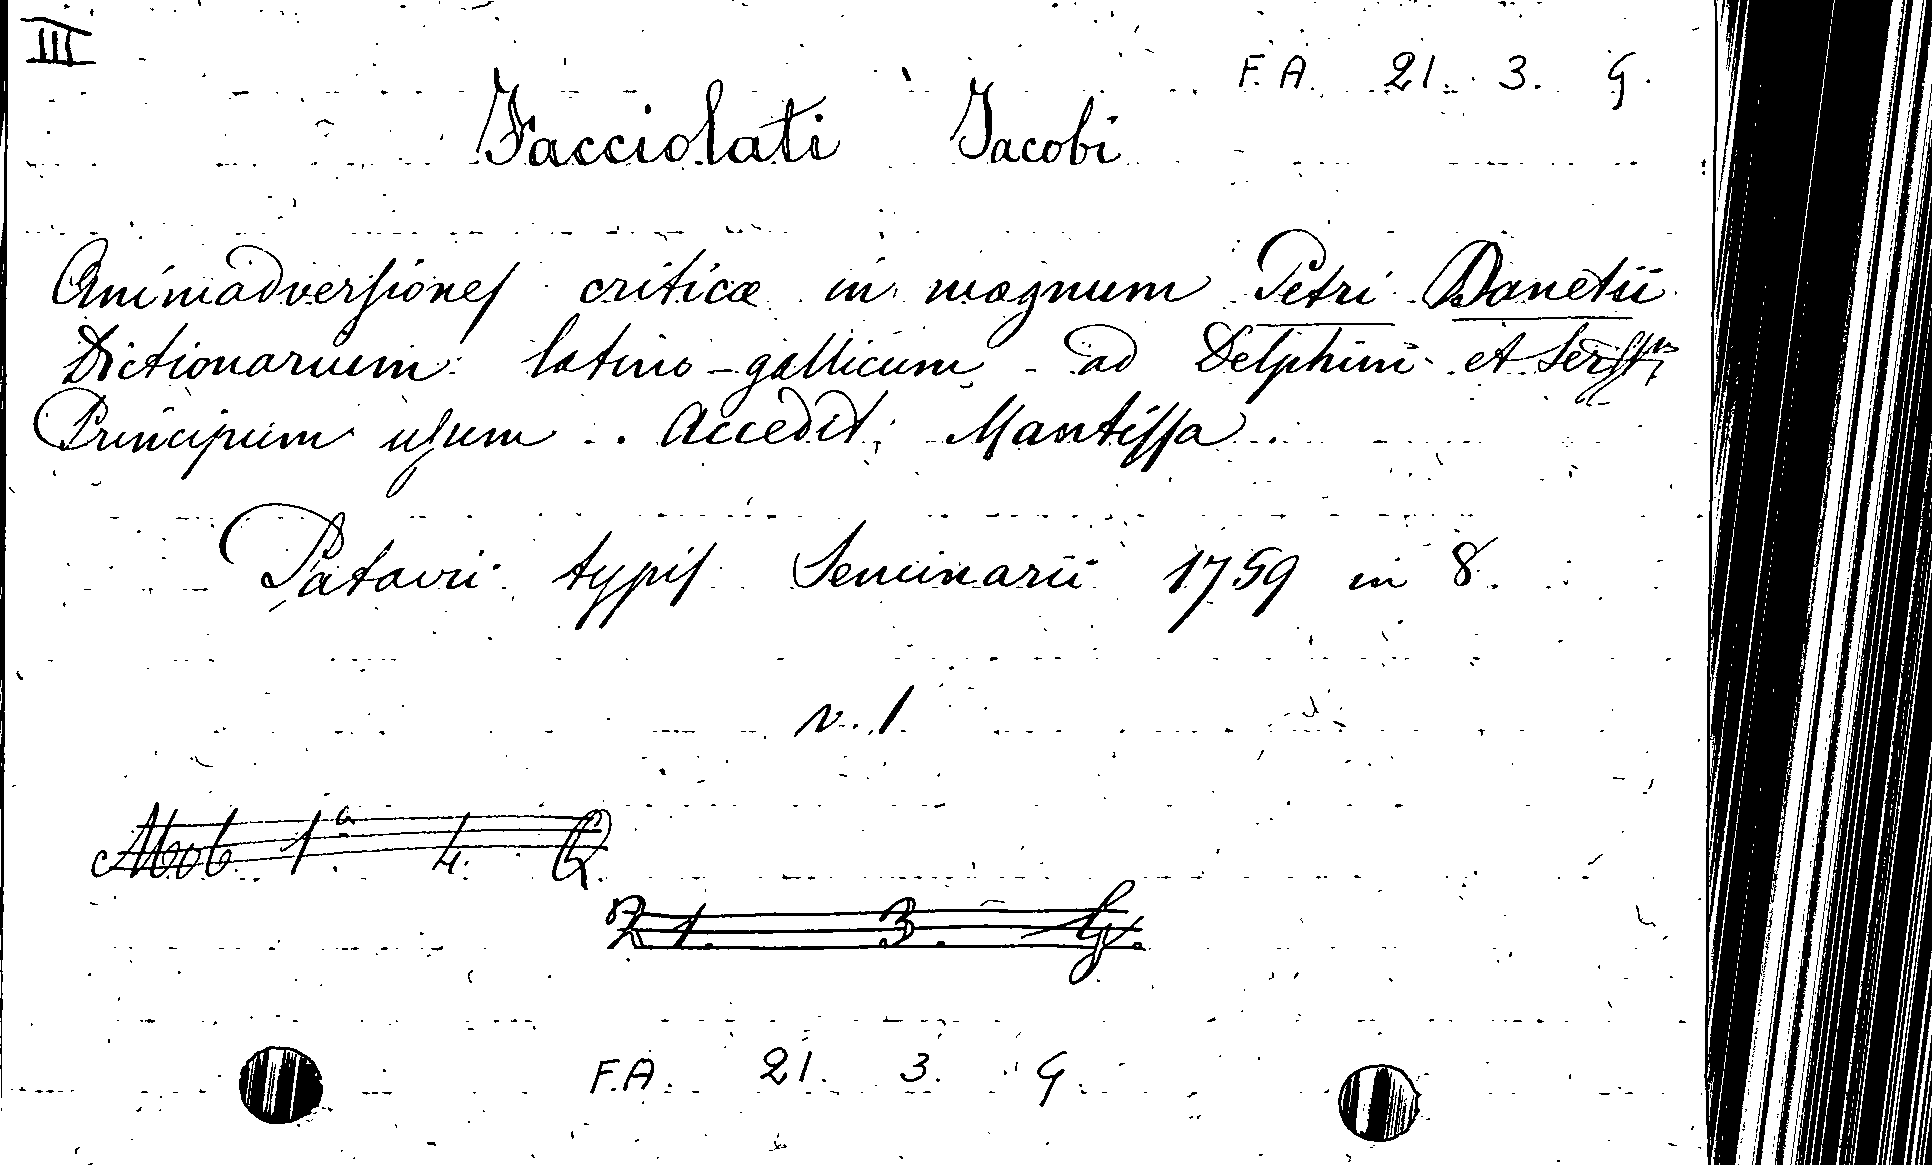 III
F. A. 21. 3. G.
Facciolati Jacobi
Animadversiones criticæ in magnum Petri Danetii
Dictionarium latino-gallicum ad Delphini et Ser.
Principum usum. Accedit Mantissa.
Patavii typis Seminarii 1759 in 8.
v. 1
Mob. 1.a 4. Q
21. 3. G.
F.A. 21. 3. G